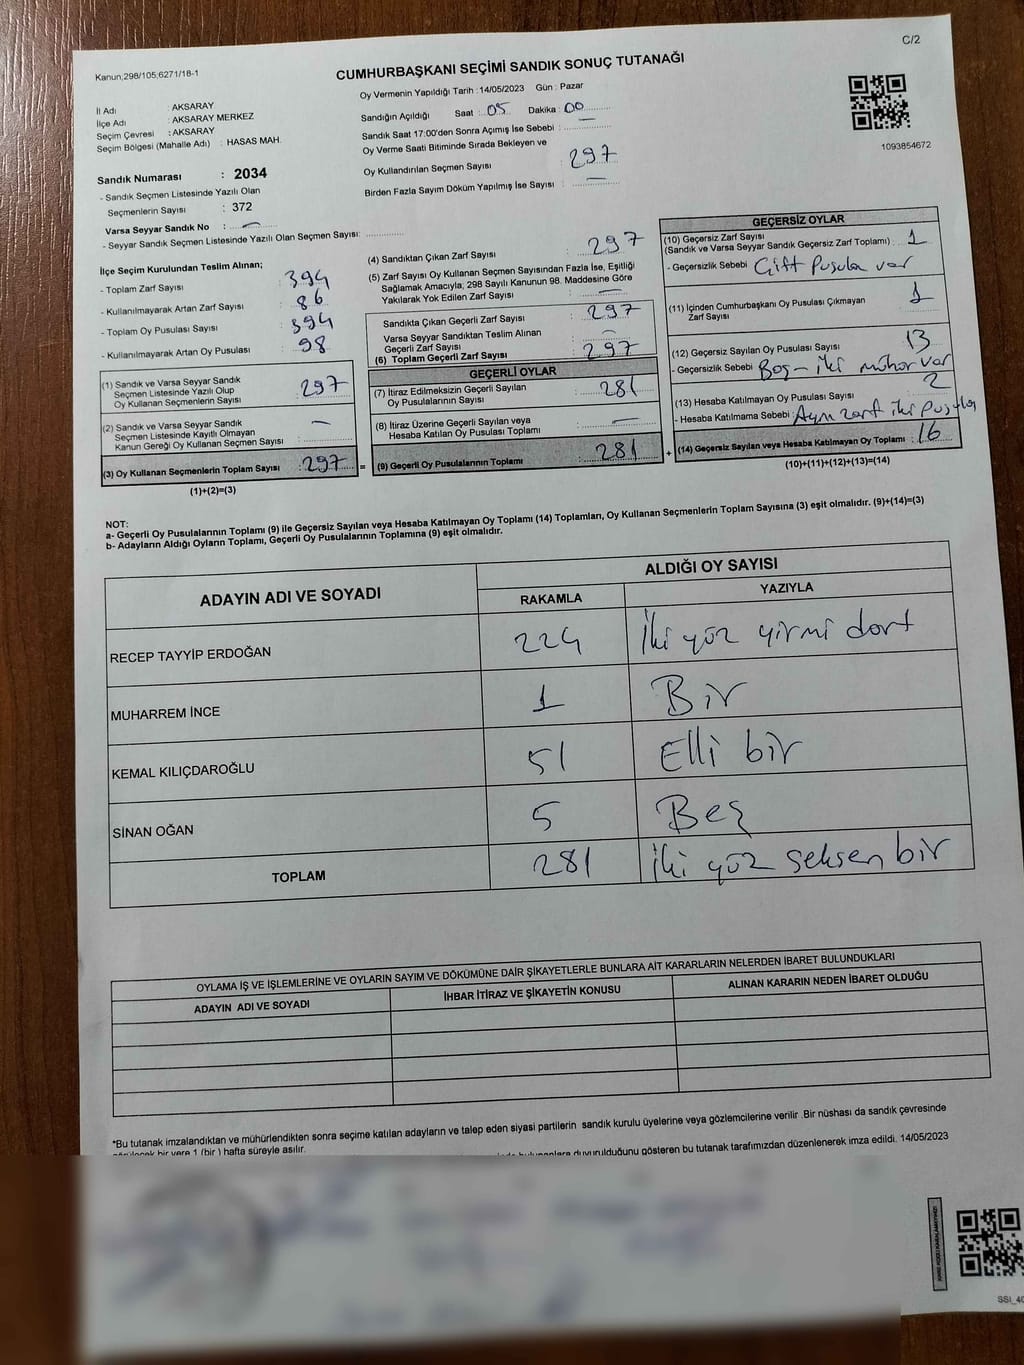 C/2
Kanun;298/105;6271/18-1
CUMHURBAŞKANI SEÇİMİ SANDIK SONUÇ TUTANAĞI
Oy Vermenin Yapıldığı Tarih : 14/05/2023 Gün : Pazar
İl Adı : AKSARAY
İlçe Adı : AKSARAY MERKEZ
Seçim Çevresi : AKSARAY
Seçim Bölgesi (Mahalle Adı) : HASAS MAH.
Sandık Numarası : 2034
- Sandık Seçmen Listesinde Yazılı Olan
Seçmenlerin Sayısı : 372
Varsa Seyyar Sandık No : —
- Seyyar Sandık Seçmen Listesinde Yazılı Olan Seçmen Sayısı: ..............
Sandığın Açıldığı Saat : 05 Dakika : 00
Sandık Saat 17:00'den Sonra Açımış İse Sebebi : —
Oy Verme Saati Bitiminde Sırada Bekleyen ve
Oy Kullandırılan Seçmen Sayısı : 297
Birden Fazla Sayım Döküm Yapılmış İse Sayısı : —
1093854672
İlçe Seçim Kurulundan Teslim Alınan;
- Toplam Zarf Sayısı : 394
- Kullanılmayarak Artan Zarf Sayısı : 86
- Toplam Oy Pusulası Sayısı : 394
- Kullanılmayarak Artan Oy Pusulası : 98
(1) Sandık ve Varsa Seyyar Sandık
Seçmen Listesinde Yazılı Olup
Oy Kullanan Seçmenlerin Sayısı : 297
(2) Sandık ve Varsa Seyyar Sandık
Seçmen Listesinde Kayıtlı Olmayan
Kanun Gereği Oy Kullanan Seçmen Sayısı : —
(3) Oy Kullanan Seçmenlerin Toplam Sayısı : 297 =
(1)+(2)=(3)
(4) Sandıktan Çıkan Zarf Sayısı : 297
(5) Zarf Sayısı Oy Kullanan Seçmen Sayısından Fazla İse, Eşitliği
Sağlamak Amacıyla; 298 Sayılı Kanunun 98. Maddesine Göre
Yakılarak Yok Edilen Zarf Sayısı : —
Sandıkta Çıkan Geçerli Zarf Sayısı : 297
Varsa Seyyar Sandıktan Teslim Alınan
Geçerli Zarf Sayısı : —
(6) Toplam Geçerli Zarf Sayısı : 297
GEÇERLİ OYLAR
(7) İtiraz Edilmeksizin Geçerli Sayılan
Oy Pusulalarının Sayısı : 281
(8) İtiraz Üzerine Geçerli Sayılan veya
Hesaba Katılan Oy Pusulası Toplamı : —
(9) Geçerli Oy Pusulalarının Toplamı : 281 +
GEÇERSİZ OYLAR
(10) Geçersiz Zarf Sayısı
(Sandık ve Varsa Seyyar Sandık Geçersiz Zarf Toplamı) : 1
- Geçersizlik Sebebi : Çift pusula var
(11) İçinden Cumhurbaşkanı Oy Pusulası Çıkmayan
Zarf Sayısı : 1
(12) Geçersiz Sayılan Oy Pusulası Sayısı : 13
- Geçersizlik Sebebi : Boş - iki mühür var
(13) Hesaba Katılmayan Oy Pusulası Sayısı : 2
- Hesaba Katılmama Sebebi : Aynı zarf iki pusula
(14) Geçersiz Sayılan veya Hesaba Katılmayan Oy Toplamı : 16
(10)+(11)+(12)+(13)=(14)
NOT:
a- Geçerli Oy Pusulalarının Toplamı (9) ile Geçersiz Sayılan veya Hesaba Katılmayan Oy Toplamı (14) Toplamları, Oy Kullanan Seçmenlerin Toplam Sayısına (3) eşit olmalıdır. (9)+(14)=(3)
b- Adayların Aldığı Oyların Toplamı, Geçerli Oy Pusulalarının Toplamına (9) eşit olmalıdır.
ADAYIN ADI VE SOYADI ALDIĞI OY SAYISI
RAKAMLA YAZIYLA
RECEP TAYYİP ERDOĞAN 224 İki yüz yirmi dört
MUHARREM İNCE 1 Bir
KEMAL KILIÇDAROĞLU 51 Elli bir
SİNAN OĞAN 5 Beş
TOPLAM 281 İki yüz seksen bir
OYLAMA İŞ VE İŞLEMLERİNE VE OYLARIN SAYIM VE DÖKÜMÜNE DAİR ŞİKAYETLERLE BUNLARA AİT KARARLARIN NELERDEN İBARET BULUNDUKLARI
ADAYIN ADI VE SOYADI İHBAR İTİRAZ VE ŞİKAYETİN KONUSU ALINAN KARARIN NEDEN İBARET OLDUĞU
*Bu tutanak imzalandıktan ve mühürlendikten sonra seçime katılan adayların ve talep eden siyasi partilerin sandık kurulu üyelerine veya gözlemcilerine verilir .Bir nüshası da sandık çevresinde
görülecek bir yere 1 (bir ) hafta süreyle asılır.
duyurulduğunu gösteren bu tutanak tarafımızdan düzenlenerek imza edildi. 14/05/2023